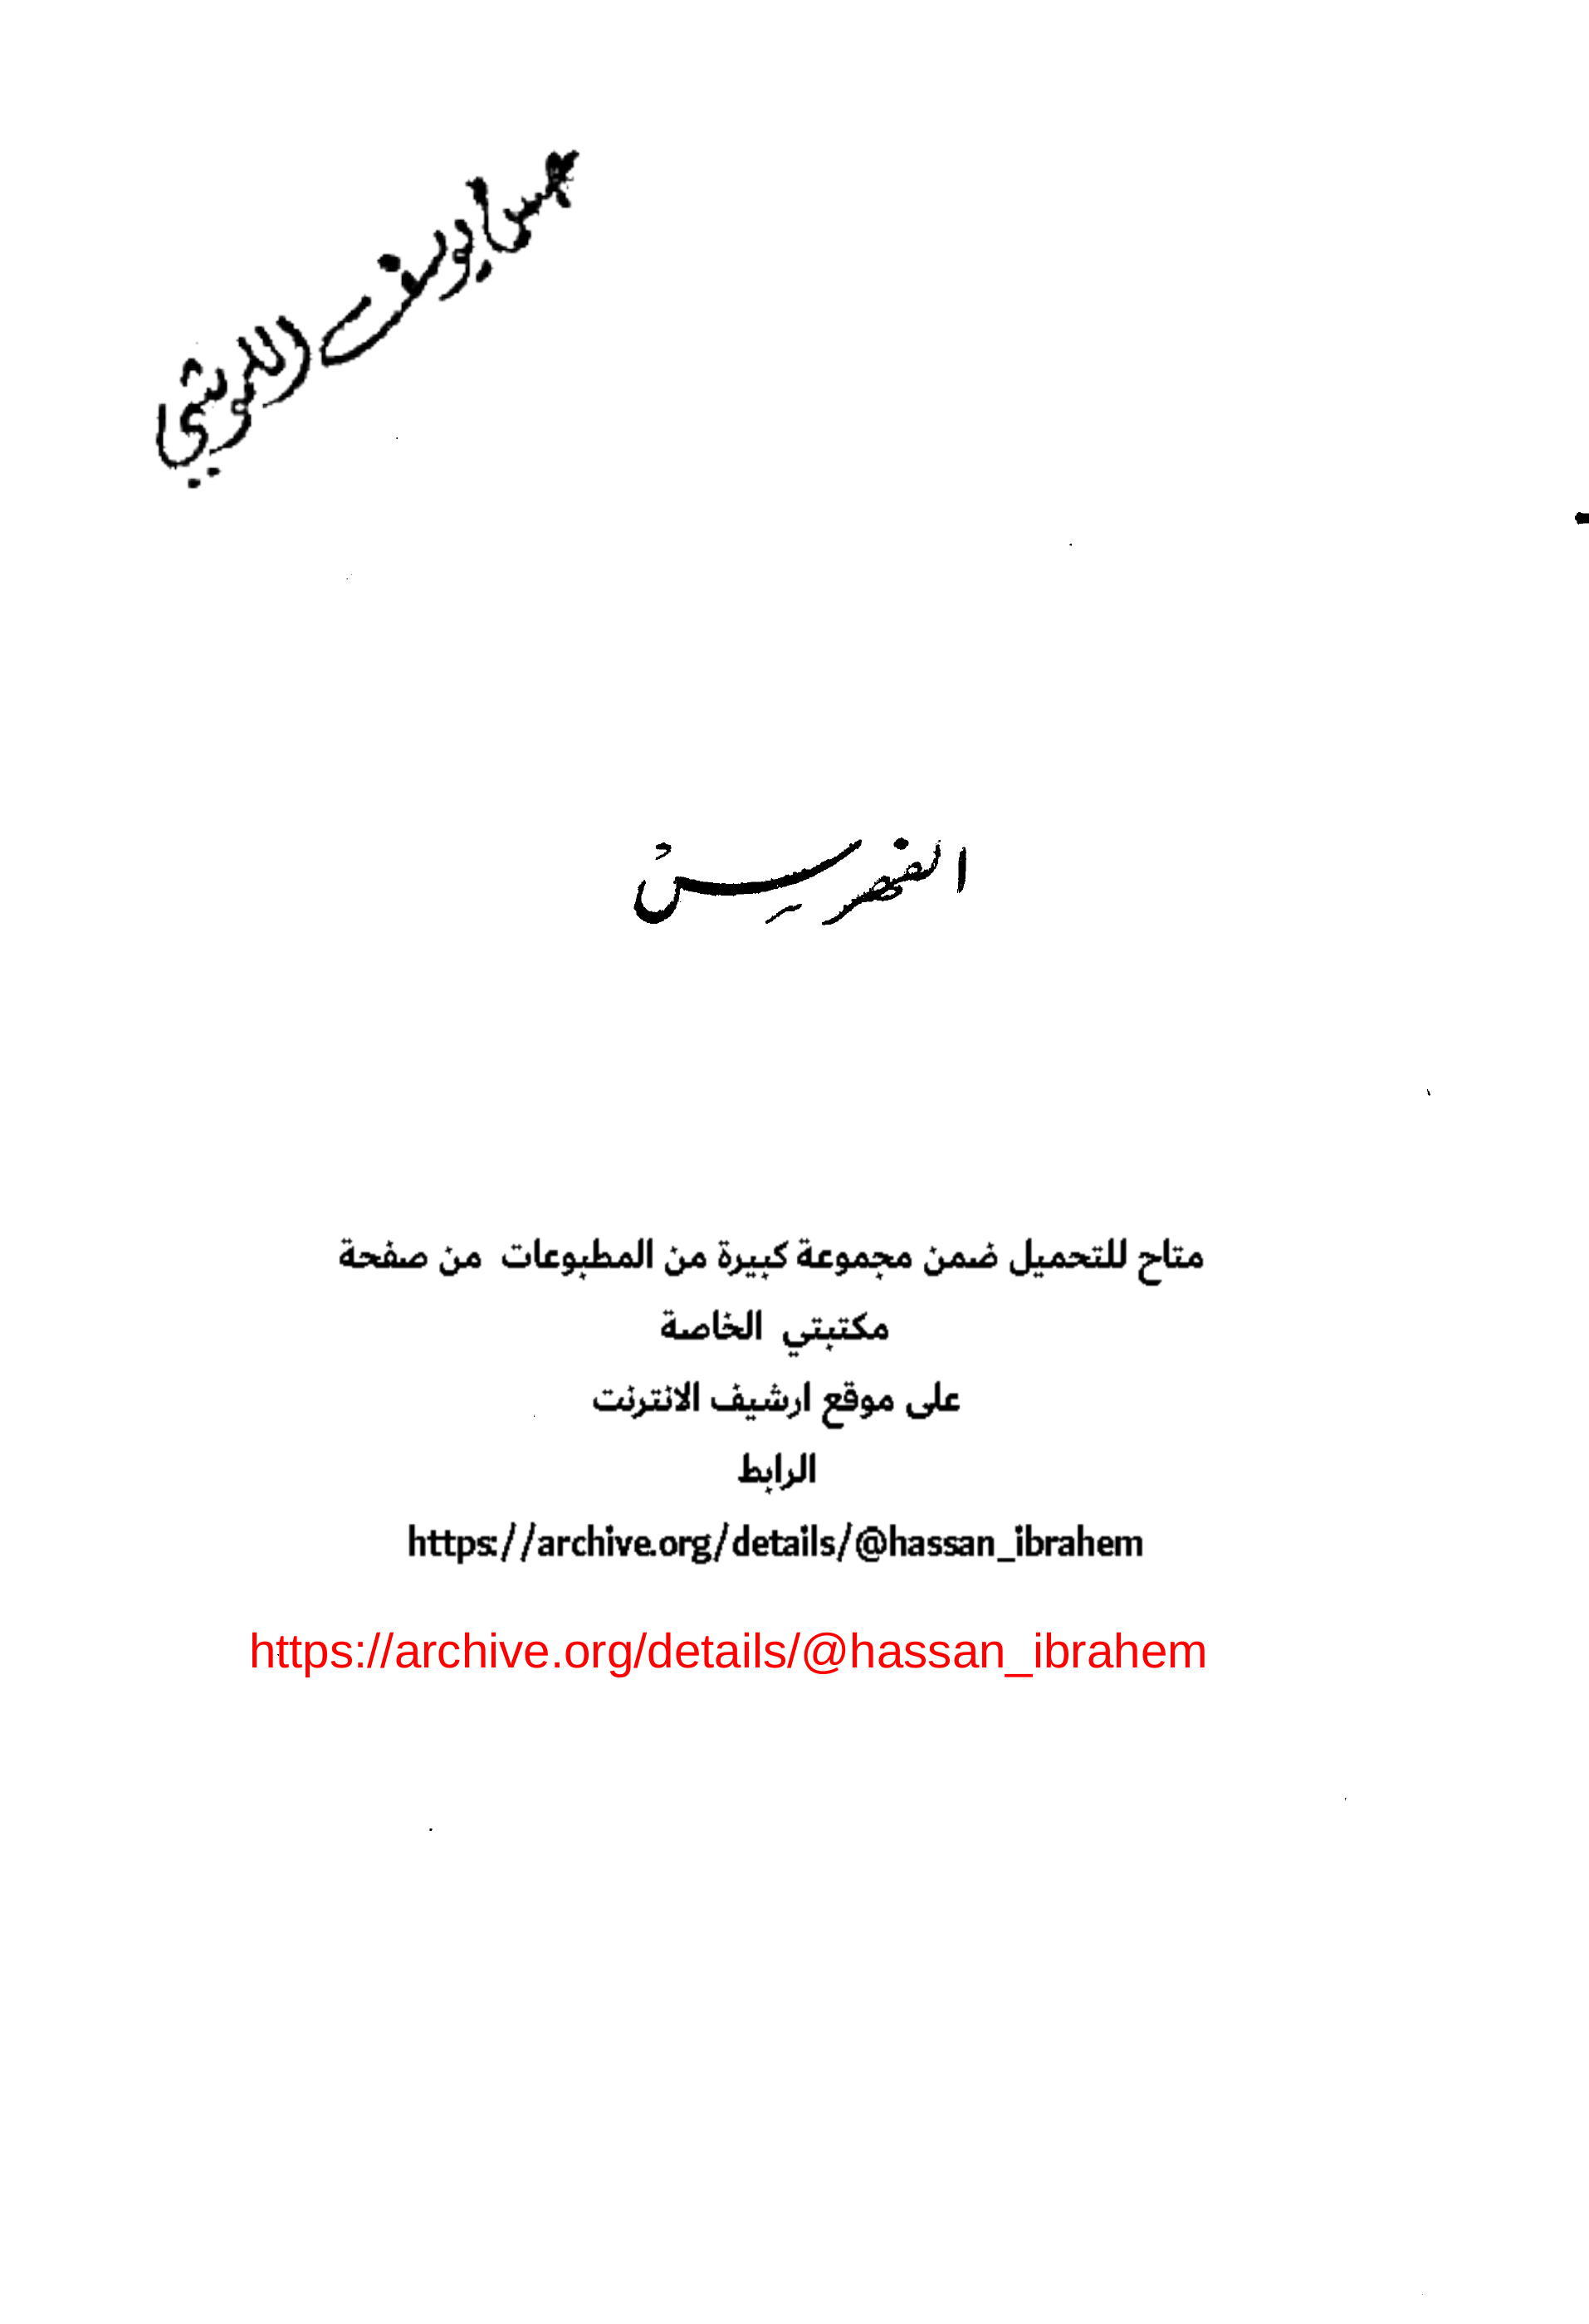 الفهرس
متاح للتحميل ضمن مجموعة كبيرة من المطبوعات من صفحة
مكتبتي الخاصة
على موقع ارشيف الانترنت
الرابط
https://archive.org/details/@hassan_ibrahem
https://archive.org/details/@hassan_ibrahem